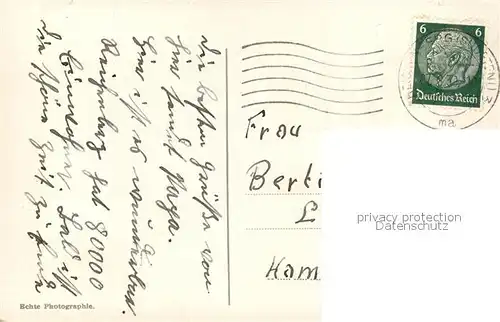 Die besten Grüße von
hier sendet Papa.
Hier ist es wunderbar.
Reichenberg hat 80000
Einwohner. Bald ist
die schöne Zeit zu Ende
Echte Photographie.
6 6
Deutsches Reich
ma
Frau
Berti
L
Ham
privacy protection
Datenschutz